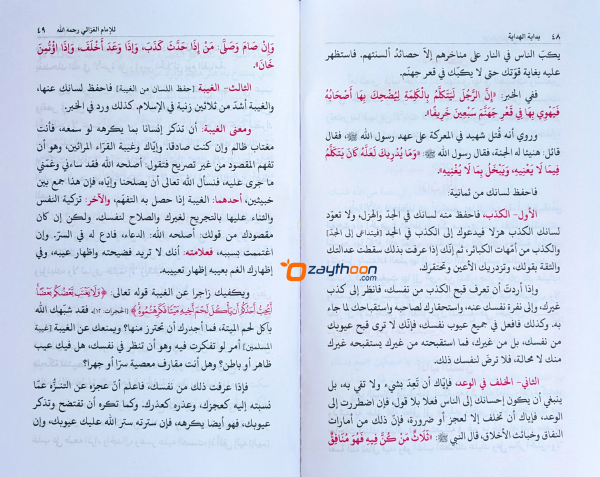 ٤٨ بداية الهداية
يكبّ الناس في النار على مناخرهم إلاّ حصائدُ ألسنتهم. فاستظهر
عليه بغاية قوّتك حتى لا يكبّك في قعر جهنّم.
ففي الخبر: «إِنَّ الرَّجُلَ لَيَتَكَلَّمُ بِالْكَلِمَةِ لِيُضْحِكَ بِهَا أَصْحَابَهُ
فَيَهْوِي بِهَا فِي قَعْرِ جَهَنَّمَ سَبْعِينَ خَرِيفًا».
وروي أنه قُتل شهيد في المعركة على عهد رسول الله ﷺ، فقال
قائل: هنيئا له الجنة، فقال رسول الله ﷺ: «وَمَا يُدْرِيكَ لَعَلَّهُ كَانَ يَتَكَلَّمُ
فِيمَا لَا يَعْنِيهِ، وَيَبْخَلُ بِمَا لَا يُغْنِيهِ».
فاحفظ لسانك من ثمانية:
الأول- الكذب، فاحفظ منه لسانك في الجدّ والهزل، ولا تعوّد
لسانك الكذب هزلا فيدعوك إلى الكذب في الجدّ [فيتداعى إلى الجدّ]
والكذب من أمّهات الكبائر، ثم إنّك إذا عرفت بذلك سقطت عدالتك
والثقة بقولك، وتزدريك الأعين وتحتقرك.
وإذا أردتَ أن تعرف قبح الكذب من نفسك، فانظر إلى كذب
غيرك، وإلى نفرة نفسك عنه، واستحقارك لصاحبه واستقباحك لما جاء
به. وكذلك فافعل في جميع عيوب نفسك، فإنّك لا ترى قبح عيوبك
من نفسك، بل من غيرك، فما استقبحته من غيرك يستقبحه غيرك
منك لا محالة، فلا ترضَ لنفسك ذلك.
الثاني- الخلف في الوعد، فإيّاك أن تَعِدَ بشيء ولا تفي به، بل
ينبغي أن يكون إحسانك إلى الناس فعلا بلا قول، فإن اضطررت إلى
الوعد، فإياك أن تخلف إلا لعجز أو ضرورة، فإنّ ذلك من أمارات
النفاق وخبائث الأخلاق، قال النبي ﷺ: «ثَلَاثٌ مَنْ كُنَّ فِيهِ فَهُوَ مُنَافِقٌ
للإمام الغزالي رحمه الله ٤٩
وَإِنْ صَامَ وَصَلَّى: مَنْ إِذَا حَدَّثَ كَذَبَ، وَإِذَا وَعَدَ أَخْلَفَ، وَإِذَا اؤْتُمِنَ
خَانَ».
الثالث- الغيبة [حفظ اللسان من الغيبة] فاحفظ لسانك عنها،
والغيبة أشدّ من ثلاثين زنية في الإسلام. كذلك ورد في الخبر.
ومعنى الغيبة: أن تذكر إنسانا بما يكرهه لو سمعه، فأنت
مغتاب ظالم وإن كنت صادقا. وإيّاك وغيبة القرّاء المرائين، وهو أن
تفهم المقصود من غير تصريح فتقول: أصلحه الله فقد ساءني وغمّني
ما جرى عليه، فنسأل الله تعالى أن يصلحنا وإيّاه، فإن هذا جمع بين
خبيثين، أحدهما: الغيبة إذا حصل به التفهّم، والآخر: تزكية النفس
والثناء عليها بالتجريح لغيرك والصلاح لنفسك. ولكن إن كان
مقصودك من قولك: أصلحه الله: الدعاء، فادع له في السرّ. وإن
اغتممت بسببه، فعلامته: أنك لا تريد فضيحته وإظهار عيبه، وفي
إظهارك الغم بعيبه إظهار تعييبه.
ozaythoon.com
ويكفيك زاجرا عن الغيبة قوله تعالى: ﴿وَلَا يَغْتَب بَّعْضُكُم بَعْضًا
أَيُحِبُّ أَحَدُكُمْ أَن يَأْكُلَ لَحْمَ أَخِيهِ مَيْتًا فَكَرِهْتُمُوهُ﴾ [الحجرات: ١٢]. فقد شبّهك الله
بآكل لحم الميتة، فما أجدرك أن تحترز منها! ويمنعك عن الغيبة [غيبة
المسلمين] أمر لو تفكرت فيه وهو أن تنظر في نفسك، هل فيك عيب
ظاهر أو باطن؟ وهل أنت مقارف معصية سرّا أو جهرا؟
فإذا عرفت ذلك من نفسك، فاعلم أنّ عجزه عن التنزُّه عمّا
نسبته إليه كعجزك، وعذره كعذرك. وكما تكره أن تفتضح وتذكر
عيوبك، فهو أيضا يكرهه، فإن سترته ستر الله عليك عيوبك، وإن